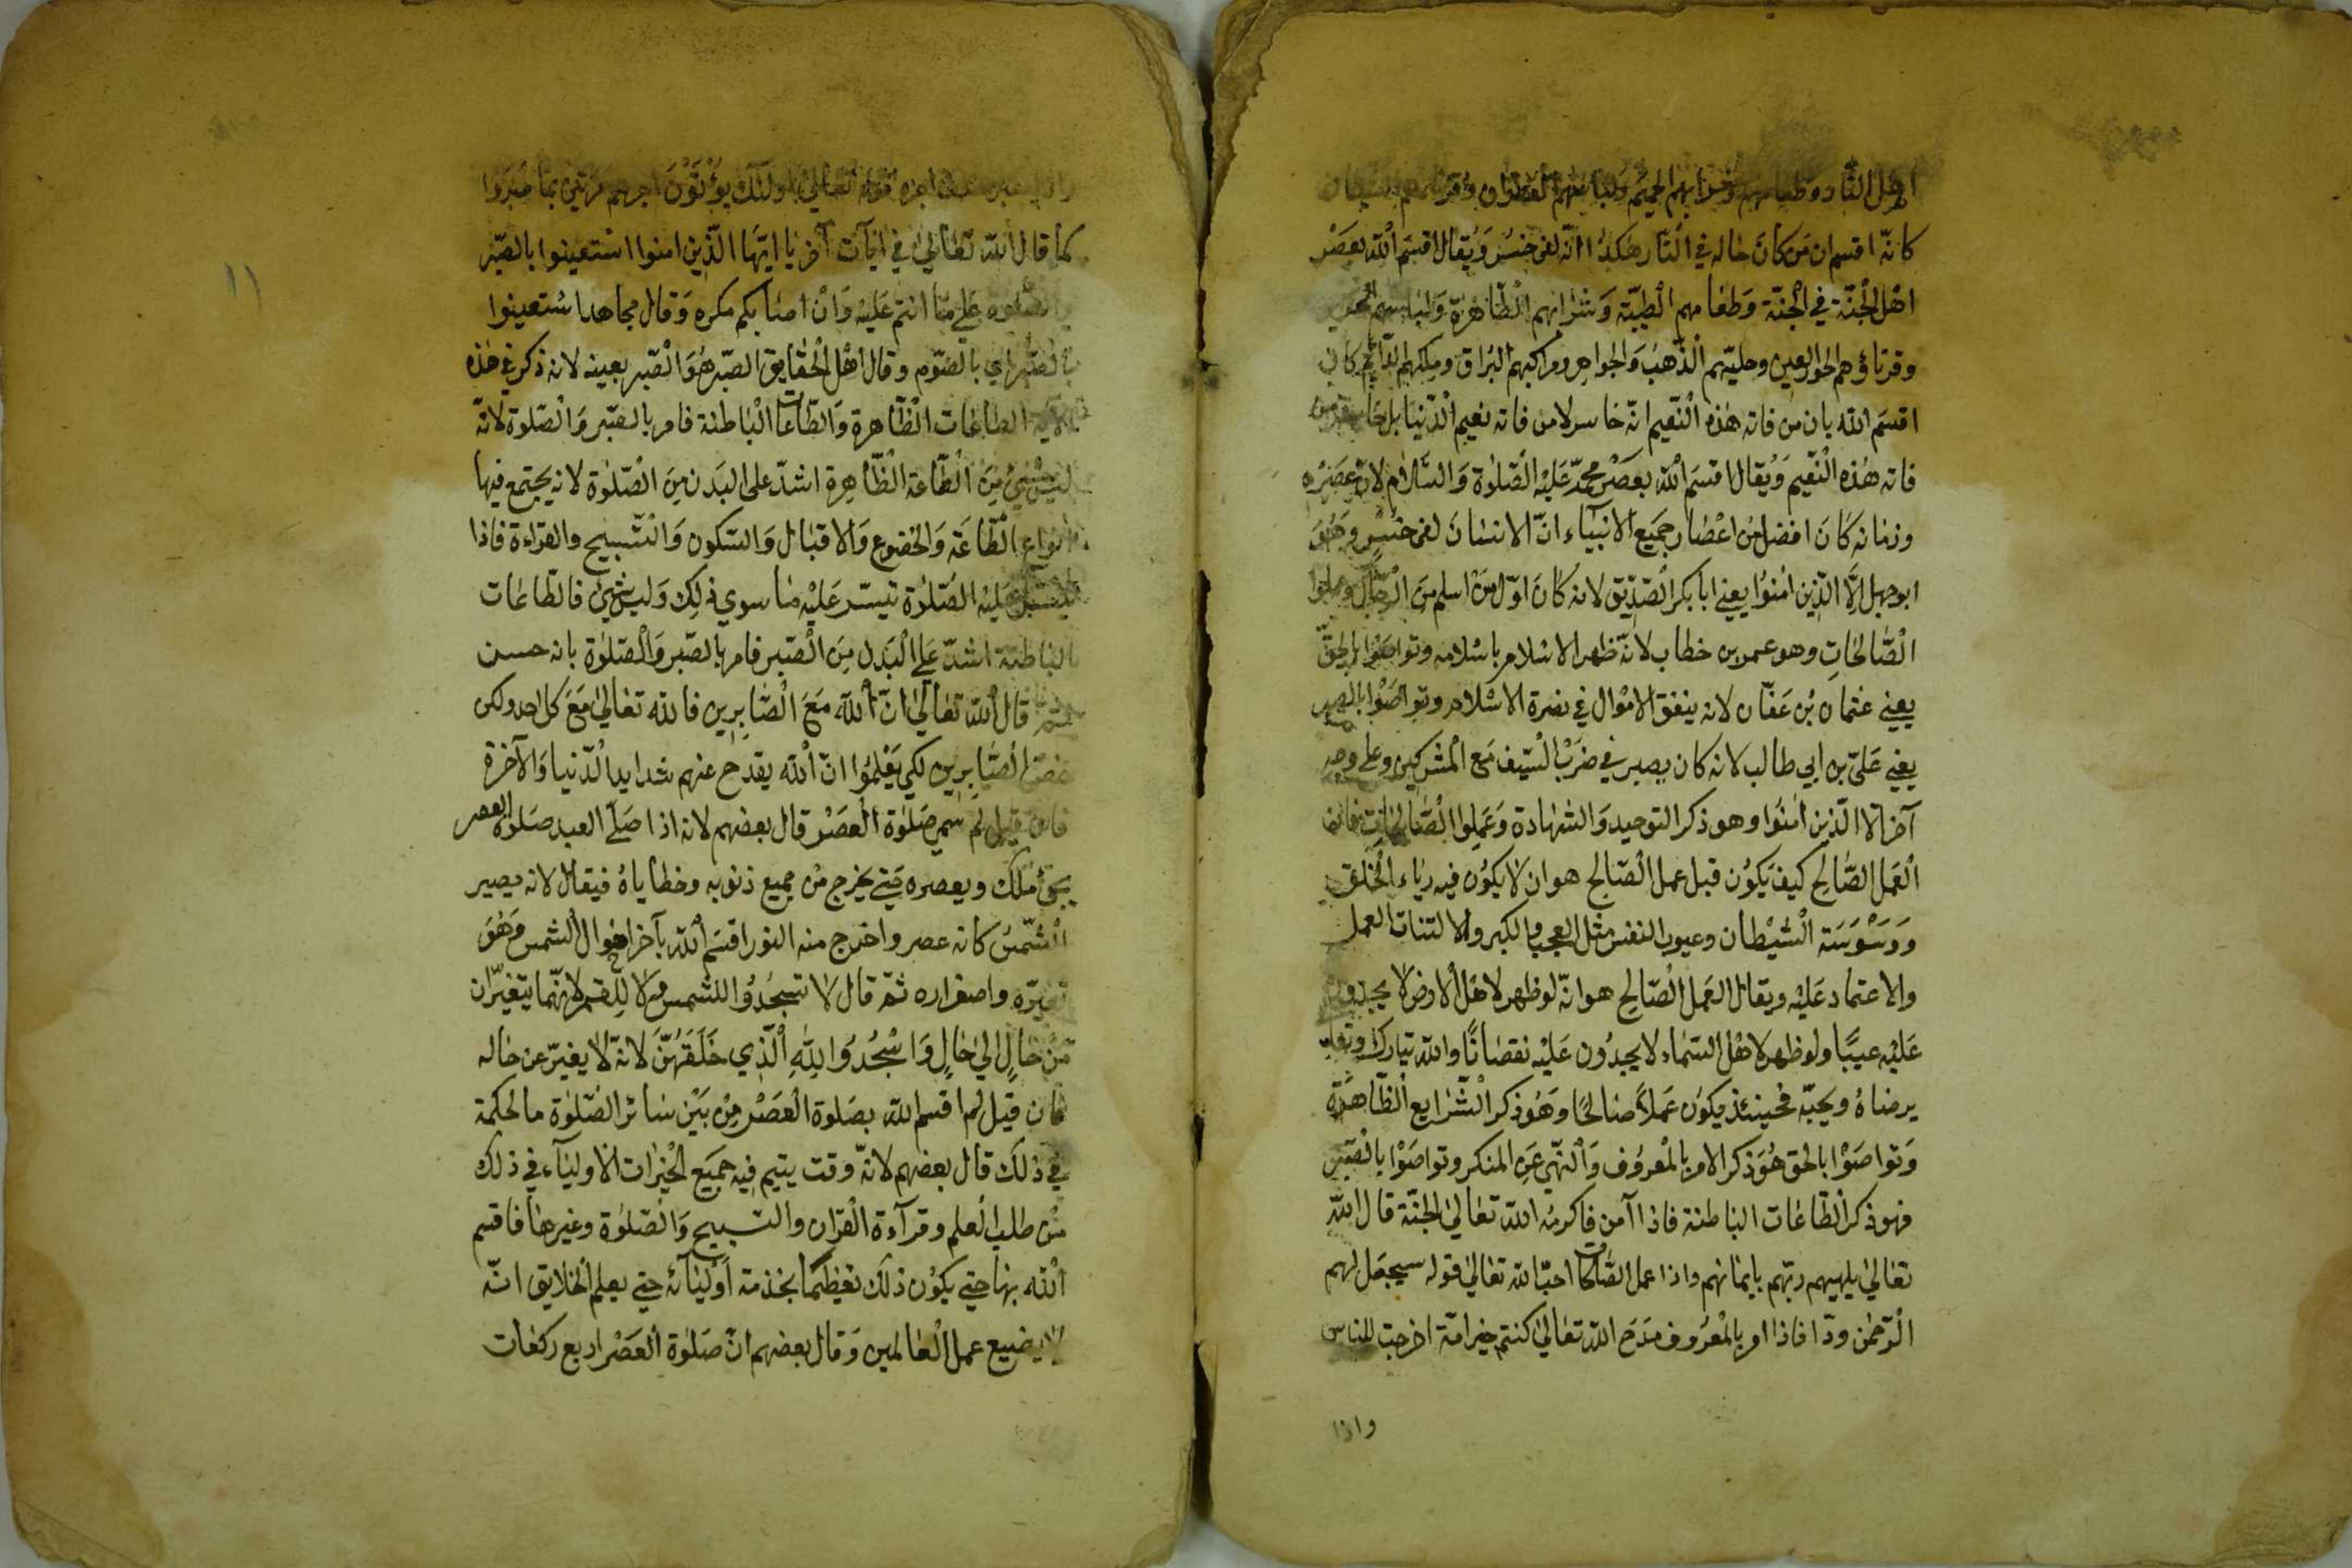 اهل النار وطعامهم وشرابهم الحميم ولباسهم القطران وقرناؤهم الشيطان
كانّه اقسم ان من كان حاله في النار هكذا انّه لفى خسر ويقال اقسم الله بعصر
اهل الجنّة في الجنّة وطعامهم الطيّبة وشرابهم الطّاهرة ولباسهم الحرير
وقرناؤهم الحور العين وحليّهم الذّهب والجواهر ومراكبهم البراق وملكهم الدّائم كان
اقسم الله بان من فاته هذه النّعيم انّه خاسر لا من فاته نعيم الدّنيا بل خاسر من
فاته هذه النّعيم ويقال اقسم الله بعصر محمّد عليه الصّلوة والسّلام لان عصره
وزمانه كان افضل من اعصار جميع الانبياء انّ الانسان لفى خسر وهو
ابو جهل الّا الّذين امنوا يعني ابا بكر الصّدّيق لانه كان اوّل من اسلم من الرّجال وعملوا
الصّالحات وهو عمر بن خطاب لانّه ظهر الاسلام باسلامه وتواصوا بالحقّ
يعني عثمان بن عفّان لانه ينفق الاموال في نصرة الاسلام وتواصوا بالصبر
يعني عليّ بن ابي طالب لانه كان يصبر في ضرب السّيف مع المشركين وعلى وجه
آخر الا الّذين امنوا وهو ذكر التوحيد والشهادة وعملوا الصّالحات فان
العمل الصّالح كيف يكون قبل عمل الصّالح هو ان لا يكون فيه رياء الخلق
ووسوسة الشّيطان وعيوب النفس مثل العجب والكبر والالتفات العمل
والاعتماد عليه ويقال العمل الصّالح هو انّه لو ظهر لاهل الارض لا يجدون
عليه عيبًا ولو ظهر لاهل السّماء لا يجدون عليه نقصانًا والله تبارك وتعالى
يرضاه ويحبّه فحينئذ يكون عملا صالحًا وهو ذكر الشّرايع الظّاهرة
وتواصوا بالحق هو ذكر الامر بالمعروف والنّهي عن المنكر وتواصوا بالصّبر
فهو ذكر الطّاعات الباطنة فاذا آمن فاكرمه الله تعالى الجنّة قال الله
تعالى يهديهم ربّهم بايمانهم واذا عمل الصّالحات احبّ الله تعالى قوله سيجعل لهم
الرّحمن ودّا فاذا امر بالمعروف مدح الله تعالى كنتم خير امّة اخرجت للناس
واذا
١١
اجره قوله تعالى اولئك يؤتون اجرهم مرّتين بما صبروا
كما قال الله تعالى في آيات آخر يا ايّها الّذين امنوا استعينوا بالصّبر
والصّلوة على ما انتم عليه وان اصابكم مكره وقال مجاهد استعينوا
بالصّبر اي بالصّوم وقال اهل الحقايق الصّبر هو الصّبر بعينه لانه ذكر في هذه
الآية الطاعات الظّاهرة والطّاعات الباطنة فامر بالصّبر والصّلوة لانّه
ليس شيئ من الطّاعة الظّاهرة اشدّ على البدن من الصّلوة لانه يجتمع فيها
انواع الطّاعة والخضوع والاقبال والسّكون والتّسبيح والقراءة فاذا
تيسّر عليه الصّلوة تيسّر عليه ما سوى ذلك وليس شيئ فالطّاعات
الباطنة اشدّ على البدل من الصّبر فامر بالصّبر والصّلوة بانه حسن
قال الله تعالى انّ الله مع الصّابرين فالله تعالى مع كل احد ولكن
خصّ الصّابرين لكى يعلموا انّ الله يقدح عنهم شدايد الدّنيا والآخرة
فان قيل لم سمى صلوة العصر قال بعضهم لانه اذا صلّى العبد صلوة العصر
يجئ ملك ويعصره حتى يخرج من جميع ذنوبه وخطاياه فيقال لانه يصير
الشّمس كانه عصر واخرج منه النور اقسم الله بآخر احوال الشمس وهو
تغيرّه واصفراره ثمّ قال لا تسجدوا للشمس ولا للقمر لانّهما يتغيّران
من حالٍ الى حالٍ واسجدوا لله الّذي خلقهنّ لانّه لا يغيّر عن حاله
فان قيل لم اقسم الله بصلوة العصر من بين سائر الصّلوة ما الحكمة
في ذلك قال بعضهم لانّه وقت يتيم فيه جميع الخيرات الاولياء في ذلك
من طلب العلم وقرآءة القران والتسبيح والصّلوة وغيرها فاقسم
الله بها حتى يكون ذلك تعظيمًا بخدمة اوليائه حتى يعلم الخلايق انّه
لا يضيع عمل العالمين وقال بعضهم انّ صلوة العصر اربع ركعات